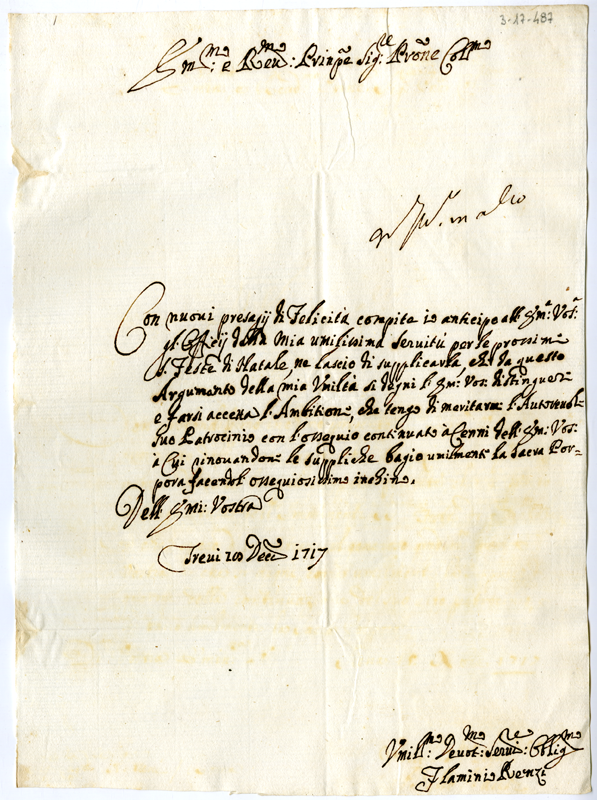 3-17-487
Em.mo: e Reu.mo: Prinpe Sig.re: Prone Coll.mo
Con nuoui presagij di Felicità compite io anticipo all' Em.a: Vos.a:
gl: Officij della mia umilissima Seruitù per le prossime
S. Feste di Natale, ne lascio di supplicarla, che da questo
Argumento della mia Vmiltà si degni l' Em: Vos: distinguere
e farsi accetta l' Ambitione, che tengo di meritarmi l' Autoreuole
Suo Patrocinio con l' ossequio continuato à Cenni dell' Em: Vos:
à Cui rinouandone le suppliche bagio umilmente la Sacra Por=
pora facendole ossequiosissimo inchino.
Dell' Emi: Vostra
Treui 20 Decē 1717
Vmill.mo: Deuot.mo: Serui.re: Oblig.mo
Flaminio Renzi